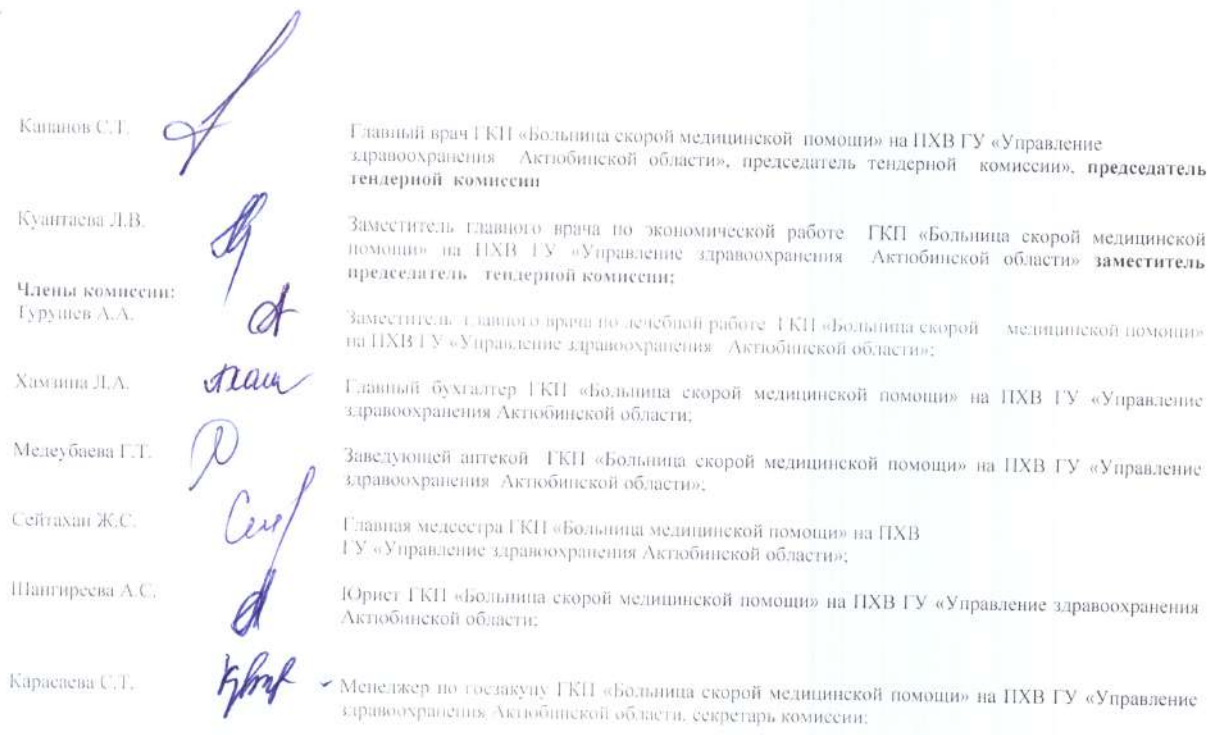 Капанов С.Т.
Главный врач ГКП «Больница скорой медицинской помощи» на ПХВ ГУ «Управление
здравоохранения Актюбинской области», председатель тендерной комиссии», председатель
тендерной комиссии
Куантаева Л.В.
Заместитель главного врача по экономической работе ГКП «Больница скорой медицинской
помощи» на ПХВ ГУ «Управление здравоохранения Актюбинской области» заместитель
председатель тендерной комиссии;
Члены комиссии:
Гурушев А.А.
Заместитель главного врача по лечебной работе ГКП «Больница скорой медицинской помощи»
на ПХВ ГУ «Управление здравоохранения Актюбинской области»;
Хамзина Л.А.
Главный бухгалтер ГКП «Больница скорой медицинской помощи» на ПХВ ГУ «Управление
здравоохранения Актюбинской области;
Медеубаева Г.Т.
Заведующей аптекой ГКП «Больница скорой медицинской помощи» на ПХВ ГУ «Управление
здравоохранения Актюбинской области»;
Сейтахан Ж.С.
Главная медсестра ГКП «Больница медицинской помощи» на ПХВ
ГУ «Управление здравоохранения Актюбинской области»;
Шангиреева А.С.
Юрист ГКП «Больница скорой медицинской помощи» на ПХВ ГУ «Управление здравоохранения
Актюбинской области;
Карасаева С.Т.
Менеджер по госзакупу ГКП «Больница скорой медицинской помощи» на ПХВ ГУ «Управление
здравоохранения Актюбинской области, секретарь комиссии;